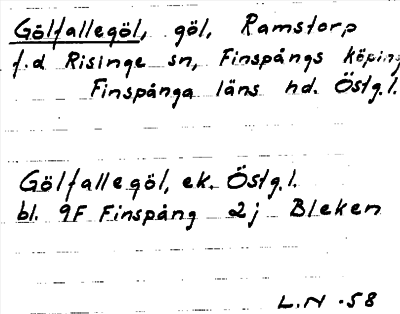 Gölfallegöl, göl, Ramstorp
f.d Risinge sn, Finspångs köping
Finspånga läns hd. Östg.l.
Gölfallegöl, ek. Östg.l.
bl. 9F Finspång 2j Bleken
L.N. -58